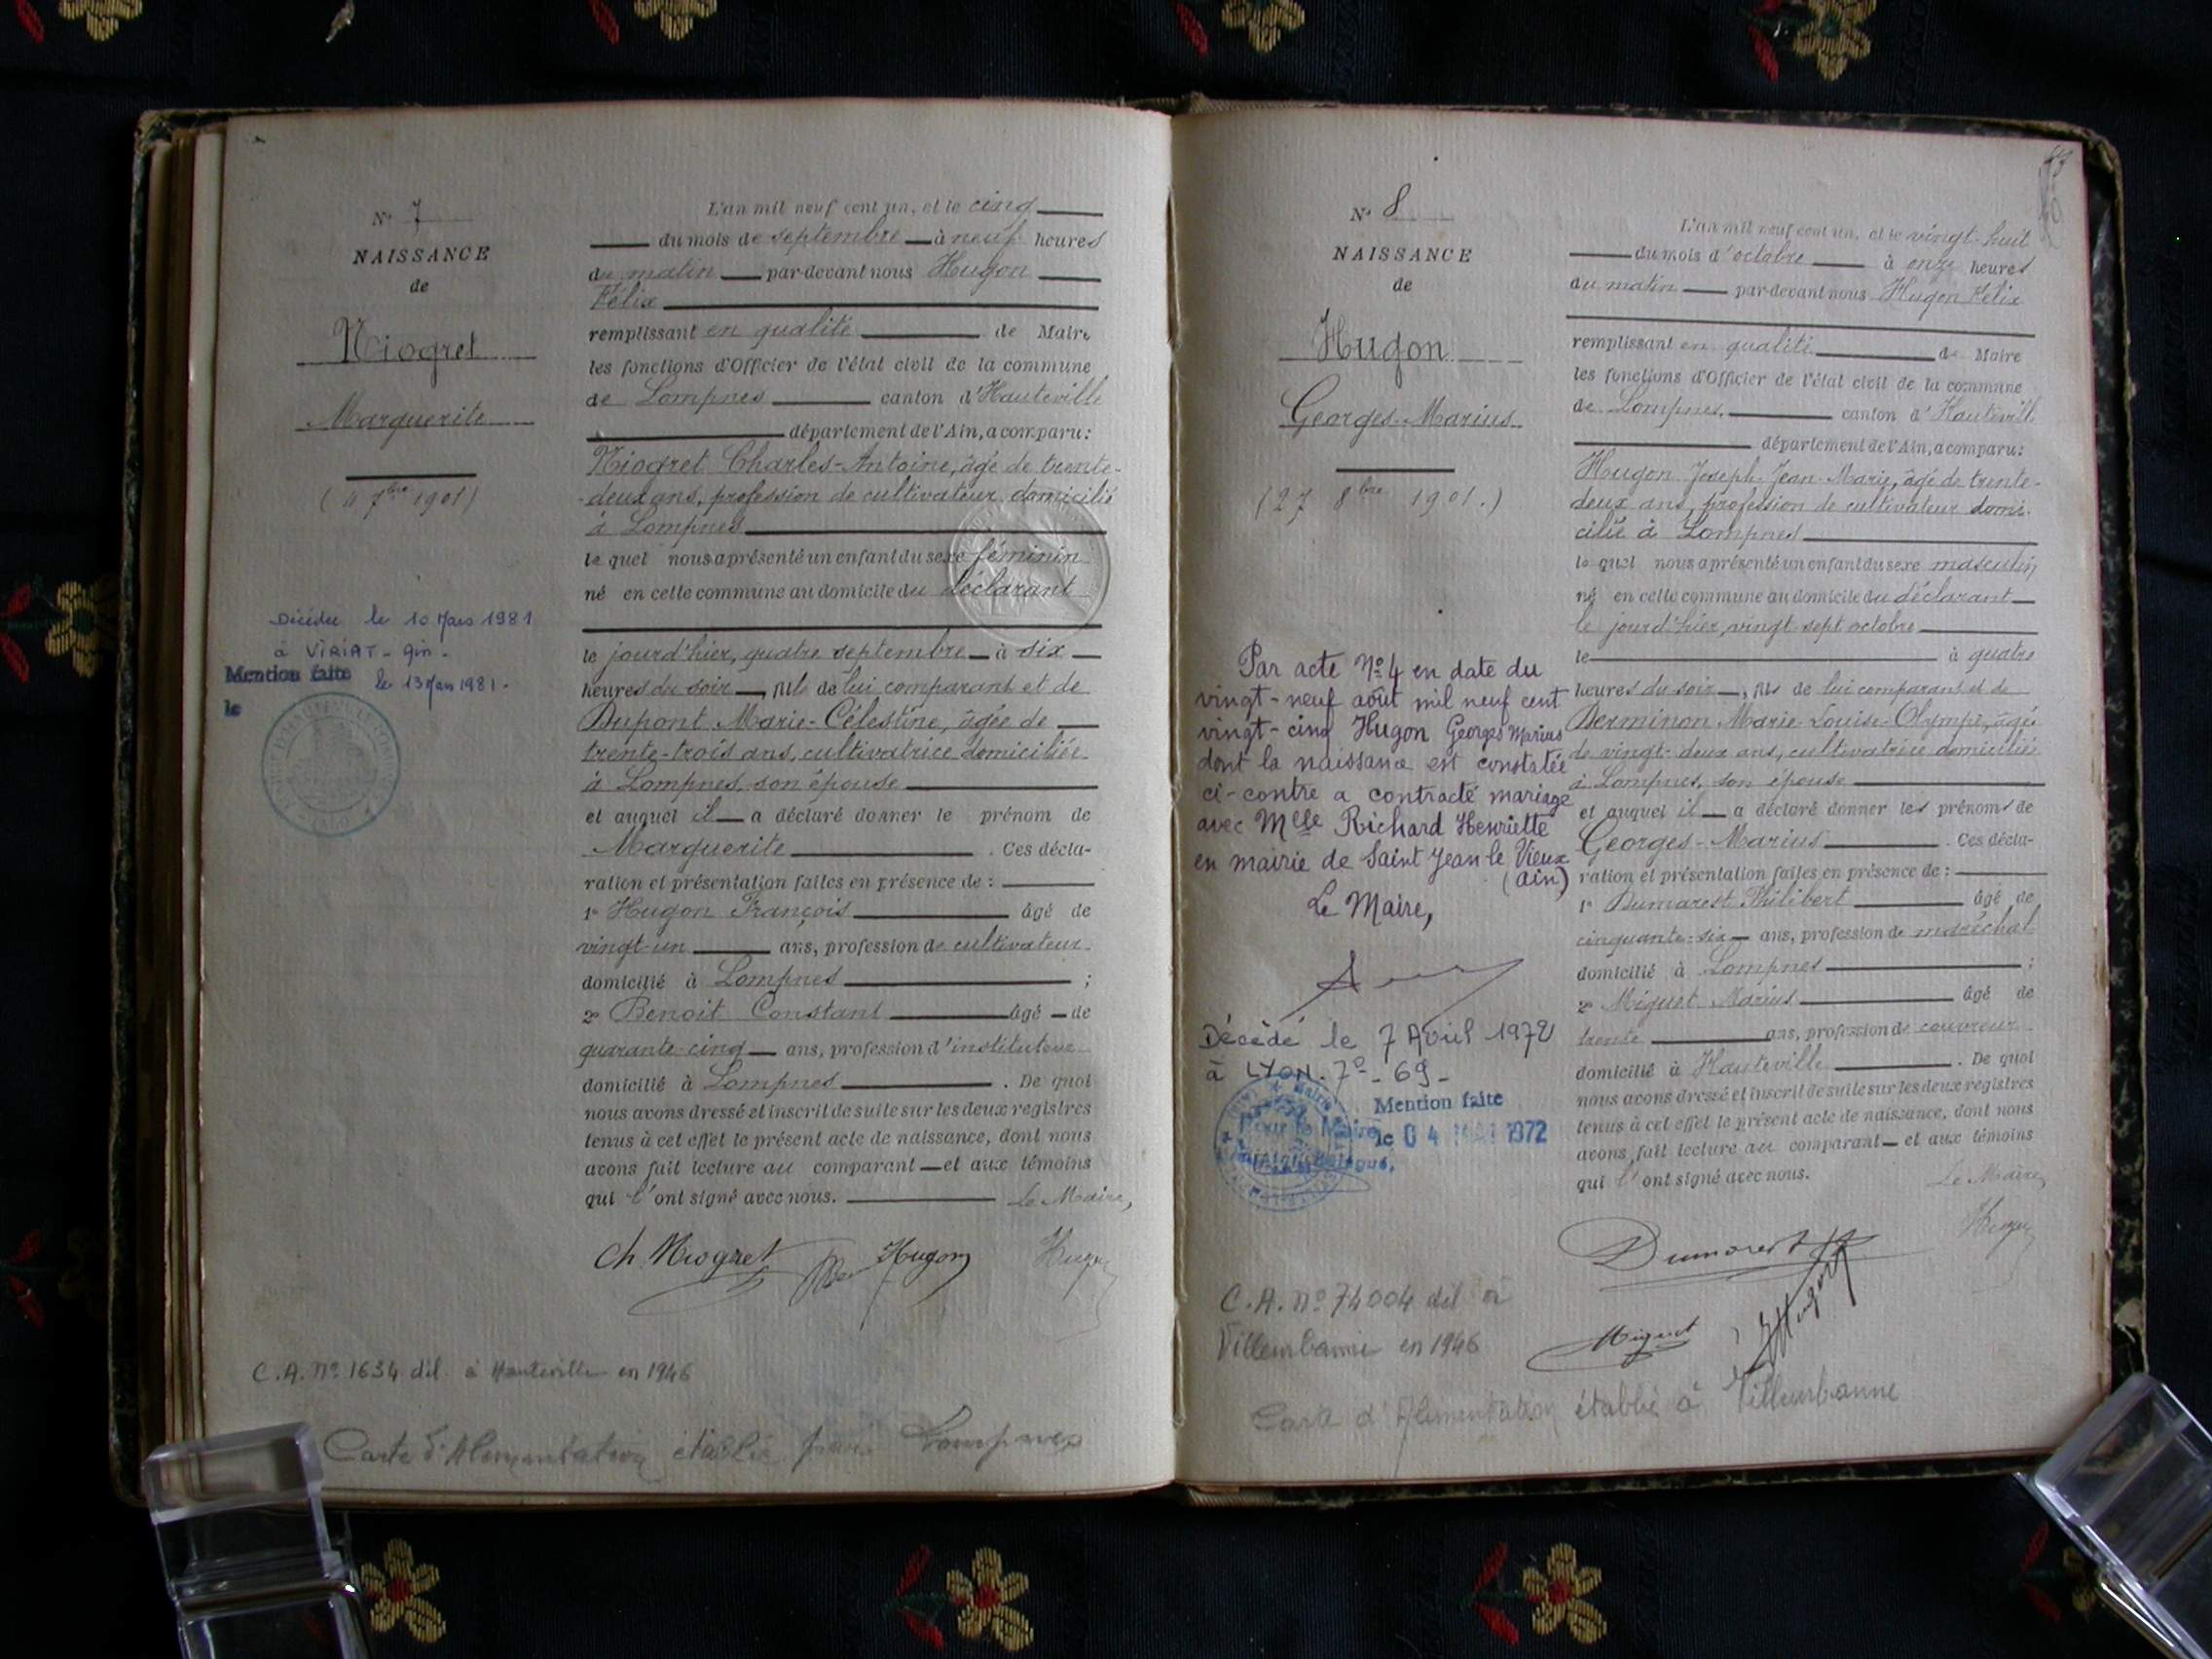 N° 7
NAISSANCE
de
Niogret
Marguerite
(4 7bre 1901)
Décédée le 10 Mars 1981
à VIRIAT - Ain -
Mention faite le 13 Mars 1981.
le
L'an mil neuf cent un, et le cinq
du mois de septembre à neuf heures
du matin par-devant nous Hugon
Félix
remplissant en qualité de Maire
les fonctions d'Officier de l'état civil de la commune
de Lompnes canton d'Hauteville
département de l'Ain, a comparu:
Niogret Charles-Antoine, âgé de trente-
deux ans, profession de cultivateur domicilié
à Lompnes
le quel nous a présenté un enfant du sexe féminin
né en cette commune au domicile du déclarant
le jourd'hier, quatre septembre à six
heures du soir, fils de lui comparant et de
Dupont Marie-Célestine, âgée de
trente-trois ans, cultivatrice domiciliée
à Lompnes, son épouse
et auquel il a déclaré donner le prénom de
Marguerite . Ces décla-
ration et présentation faites en présence de :
1° Hugon François âgé de
vingt-un ans, profession de cultivateur
domicilié à Lompnes ;
2° Benoit Constant âgé de
quarante-cinq ans, profession d'instituteur
domicilié à Lompnes . De quoi
nous avons dressé et inscrit de suite sur les deux registres
tenus à cet effet le présent acte de naissance, dont nous
avons fait lecture au comparant et aux témoins
qui l'ont signé avec nous. Le Maire,
Ch Niogret Hugon Hugon
C.A. N° 1634 dél. à Hauteville en 1946
Carte d'Alimentation établie Lompnes
N° 8
NAISSANCE
de
Hugon
Georges-Marius
(27 8bre 1901.)
Par acte N° 4 en date du
vingt-neuf août mil neuf cent
vingt-cinq Hugon Georges Marius
dont la naissance est constatée
ci-contre a contracté mariage
avec Melle Richard Henriette
en mairie de Saint Jean-le Vieux
(ain)
Le Maire,
Décédé le 7 Avril 1972
à LYON. 7° - 69 -
Mention faite
le 04 MAI 1972
Pour le Maire
L'an mil neuf cent un, et le vingt-huit
du mois d'octobre à onze heures
du matin par-devant nous Hugon Félix
remplissant en qualité de Maire
les fonctions d'Officier de l'état civil de la commune
de Lompnes, canton d'Hauteville
département de l'Ain, a comparu:
Hugon Joseph-Jean-Marie, âgé de trente-
deux ans, profession de cultivateur domi-
cilié à Lompnes
le quel nous a présenté un enfant du sexe masculin
né en cette commune au domicile du déclarant
le jourd'hier, vingt-sept octobre
le à quatre
heures du soir, fils de lui comparant et de
Berminon Marie-Louise-Olympe, âgée
de vingt-deux ans, cultivatrice domiciliée
à Lompnes, son épouse
et auquel il a déclaré donner les prénoms de
Georges-Marius . Ces décla-
ration et présentation faites en présence de :
1° Dumarest Philibert âgé de
cinquante-six ans, profession de maréchal
domicilié à Lompnes ;
2° Miguet Marius âgé de
trente ans, profession de couvreur
domicilié à Hauteville . De quoi
nous avons dressé et inscrit de suite sur les deux registres
tenus à cet effet le présent acte de naissance, dont nous
avons fait lecture au comparant et aux témoins
qui l'ont signé avec nous. Le Maire,
Dumarest Hugon
Miguet Hugon
C.A. N° 74004 dél à
Villeurbanne en 1946
Carte d'Alimentation établie à Villeurbanne